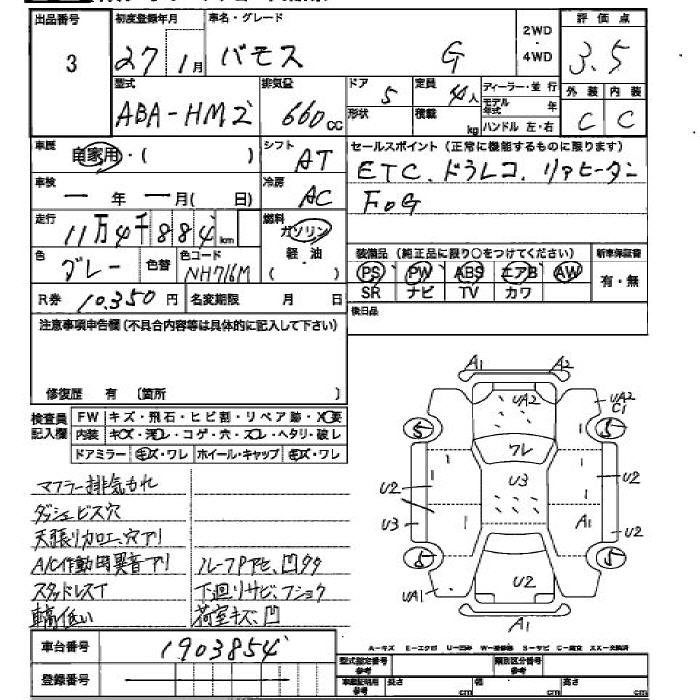 出品番号 初度登録年月 車名・グレード 2WD・4WD 評価点
3 27年1月 バモス G 3.5
型式 排気量 ドア 定員 ディーラー・並行 外装 内装
ABA-HM2 660cc 5 4人 モデル年式 年 C C
形状 積載 kg ハンドル 左・右
車歴 自家用・( ) シフト AT セールスポイント(正常に機能するものに限ります)
車検 ー年ー月( 日) 冷房 AC ETC、ドラレコ、リアヒーター
FOG
走行 11万4千884km 燃料 ガソリン
軽・油
( )
色 グレー 色替 色コード NH716M
装備品(純正品に限り○をつけてください) 新車保証書
PS PW ABS エアB AW 有・無
SR ナビ TV カワ
R券 10,350円 名変期限 月 日
後日品
注意事項申告欄(不具合内容等は具体的に記入して下さい)
修復歴 有 〔箇所 〕
検査員記入欄 FW キズ・飛石・ヒビ割・リペア跡・X要
内装 キズ・汚レ・コゲ・穴・スレ・ヘタリ・破レ
ドアミラー キズ・ワレ ホイール・キャップ キズ・ワレ
マフラー排気もれ
ダッシュビス穴
天張リカロエ、穴アリ
A/C作動時異音アリ ルーフPアセ、凹タタ
スタッドレスT 下廻リサビ、フショク
車高低い 荷室キズ、凹
A1 A2
UA2 UA2 C1
5 5
ワレ
U2 U3 U2
U3 A1 U2
5 5
UA1 U2
A1
A-キズ E-エクボ U-凹み W-補修跡 S-サビ C-腐食 XX-交換済
車台番号 1903854
登録番号
型式指定番号 参考 類別区分番号 参考
車庫証明用 参考 長さ cm 幅 cm 高さ cm